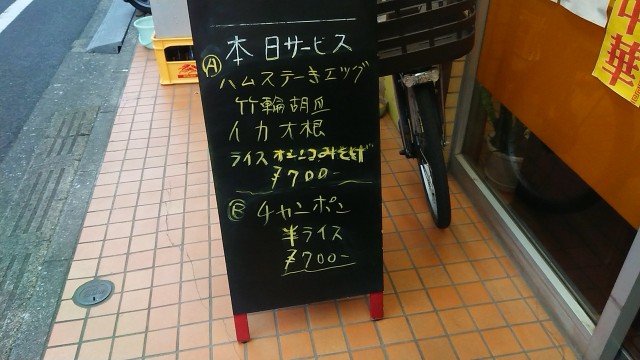 本日サービス
Ⓐ
ハムステーキエッグ
竹輪胡瓜
イカ大根
ライスオシンコみそしる
¥700-
Ⓑ チャンポン
半ライス
¥700-
中華